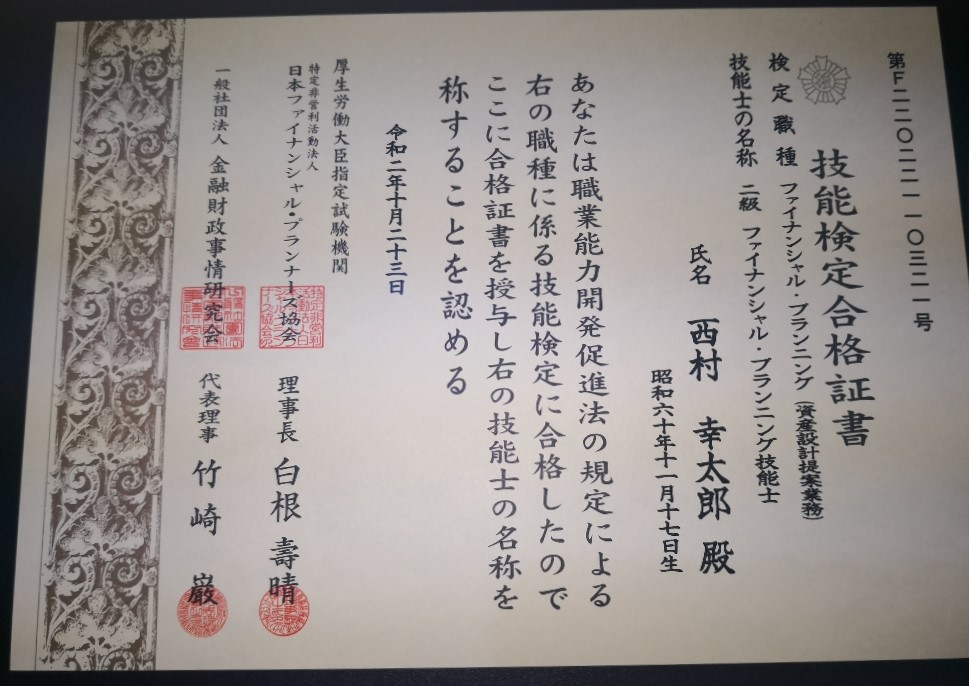 第F二二〇二二一一〇三二一一号
技能検定合格証書
検定職種 ファイナンシャル・プランニング(資産設計提案業務)
技能士の名称 二級 ファイナンシャル・プランニング技能士
氏名 西村 幸太郎 殿
昭和六十年十一月十七日生
あなたは職業能力開発促進法の規定による
右の職種に係る技能検定に合格したので
ここに合格証書を授与し右の技能士の名称を
称することを認める
令和二年十月二十三日
厚生労働大臣指定試験機関
特定非営利活動法人
日本ファイナンシャル・プランナーズ協会 理事長 白根 壽晴
一般社団法人 金融財政事情研究会 代表理事 竹崎 巌